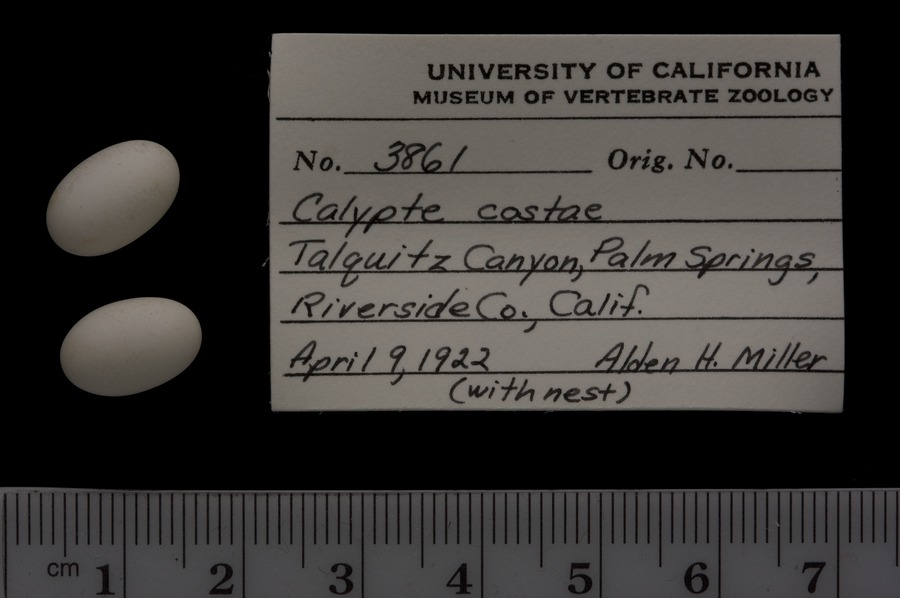 UNIVERSITY OF CALIFORNIA
MUSEUM OF VERTEBRATE ZOOLOGY
No. 3861 Orig. No.
Calypte costae
Talquitz Canyon, Palm Springs,
Riverside Co., Calif.
April 9, 1922 Alden H. Miller
(with nest)
cm 1 2 3 4 5 6 7